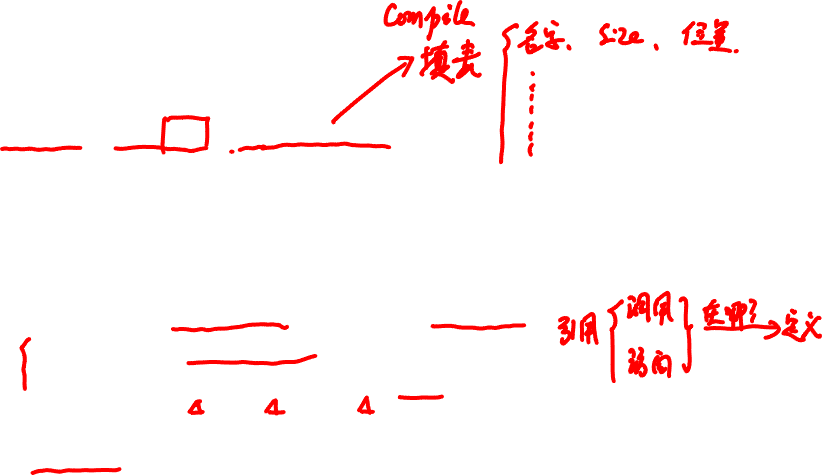 Compile
填表
名字、size、位置.
引用
调用
访问
在哪?
定义